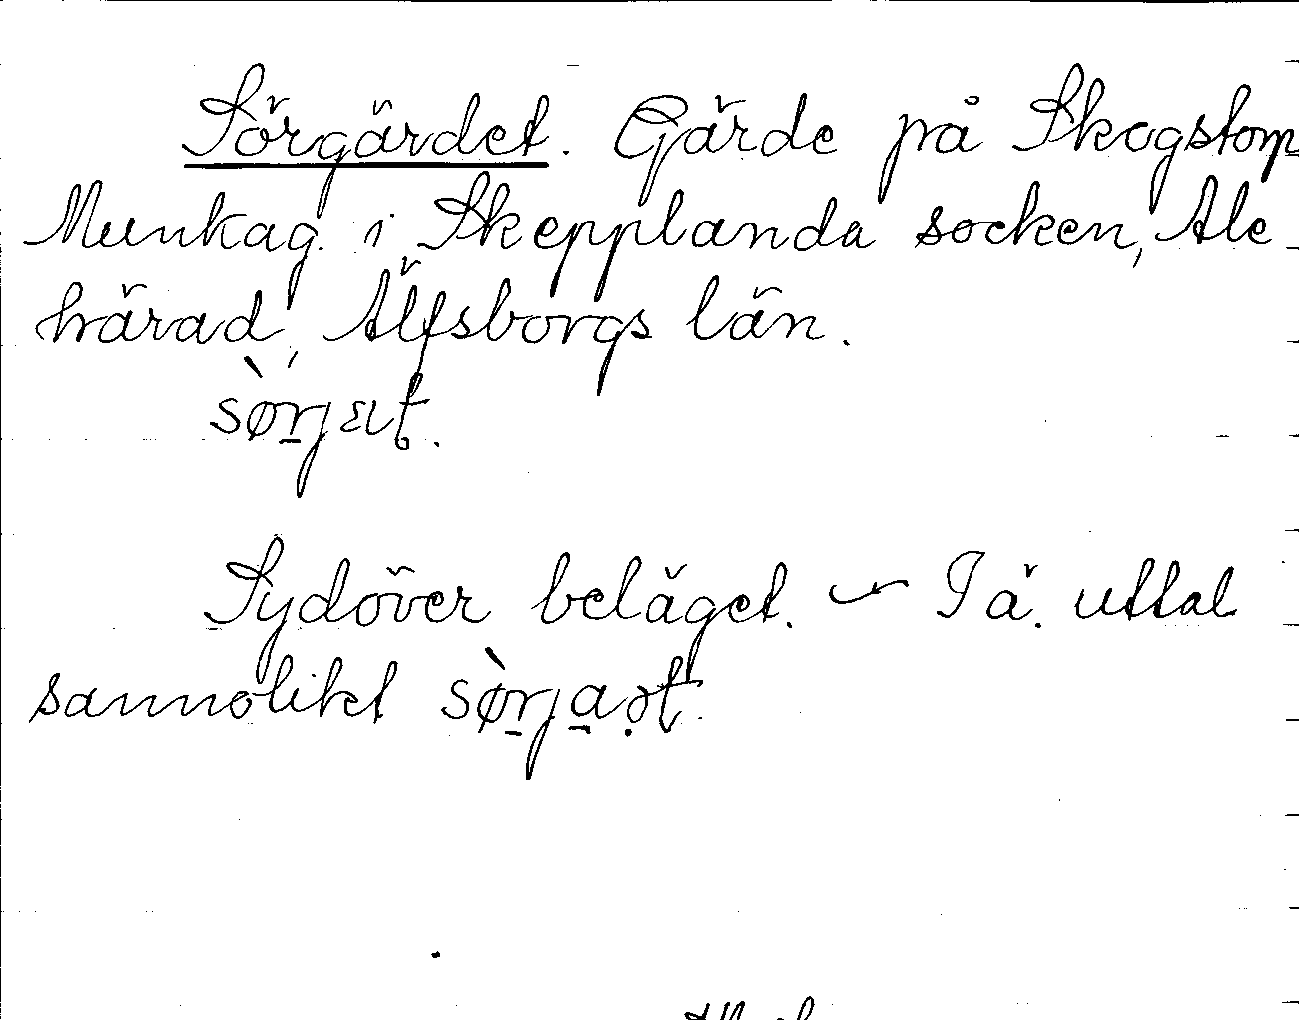 Sörgärdet. Gärde på Skogstorp
Munkag. i Skepplanda socken, Ale
härad, Älfsborgs län.
Sydöver beläget. — I ä. uttal
sannolikt